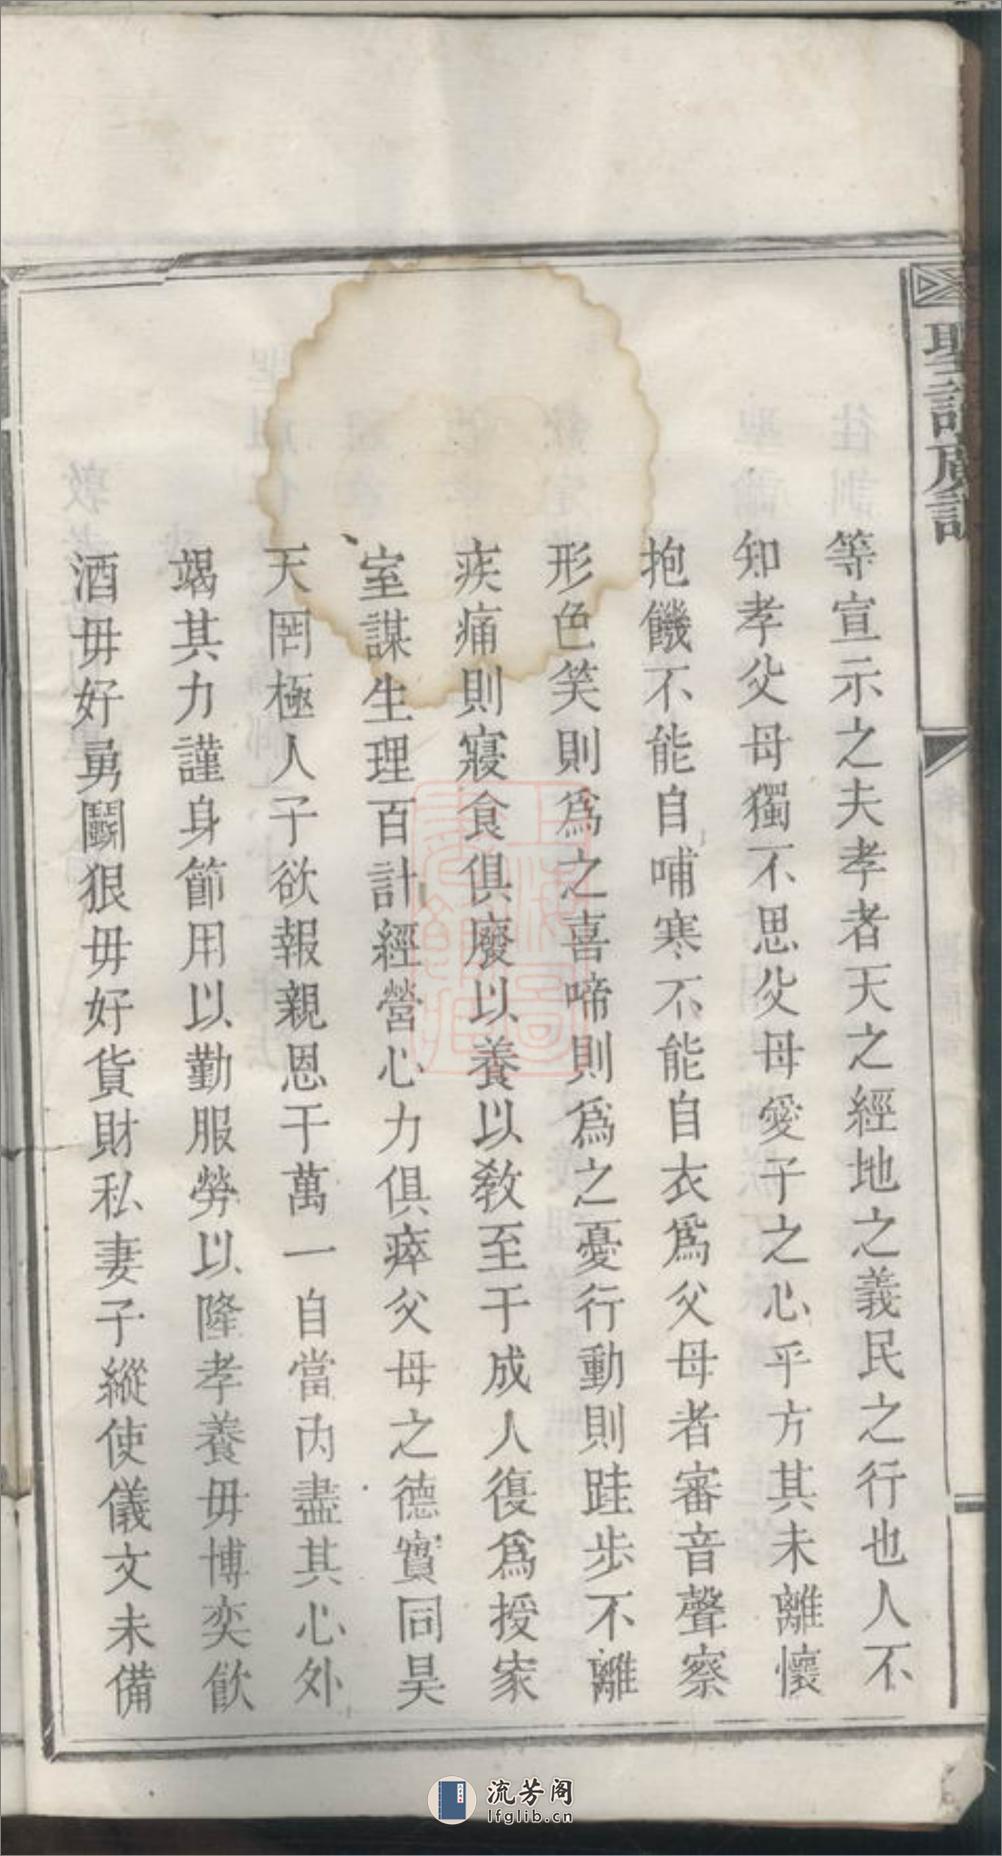 聖諭廣訓
等宣示之夫孝者天之經地之義民之行也人不
知孝父母獨不思父母愛子之心乎方其未離懷
抱饑不能自哺寒不能自衣爲父母者審音聲察
形色笑則爲之喜啼則爲之憂行動則跬步不離
疾痛則寢食俱廢以養以敎至于成人復爲授家
室謀生理百計經營心力俱瘁父母之德實同昊
天罔極人子欲報親恩于萬一自當内盡其心外
竭其力謹身節用以勤服勞以隆孝養毋博奕飮
酒毋好勇鬬狠毋好貨財私妻子縱使儀文未備
流芳阁
lfglib.cn